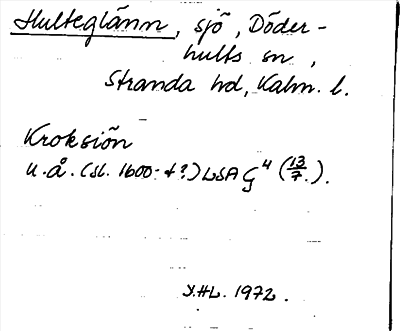 Hulteglänn, sjö, Döder-
hults sn,
Stranda hd, Kalm. l.
Kroksiön
u.å. (sl. 1600-t?) LSA G⁴ (13/7).
Y.HL. 1972.